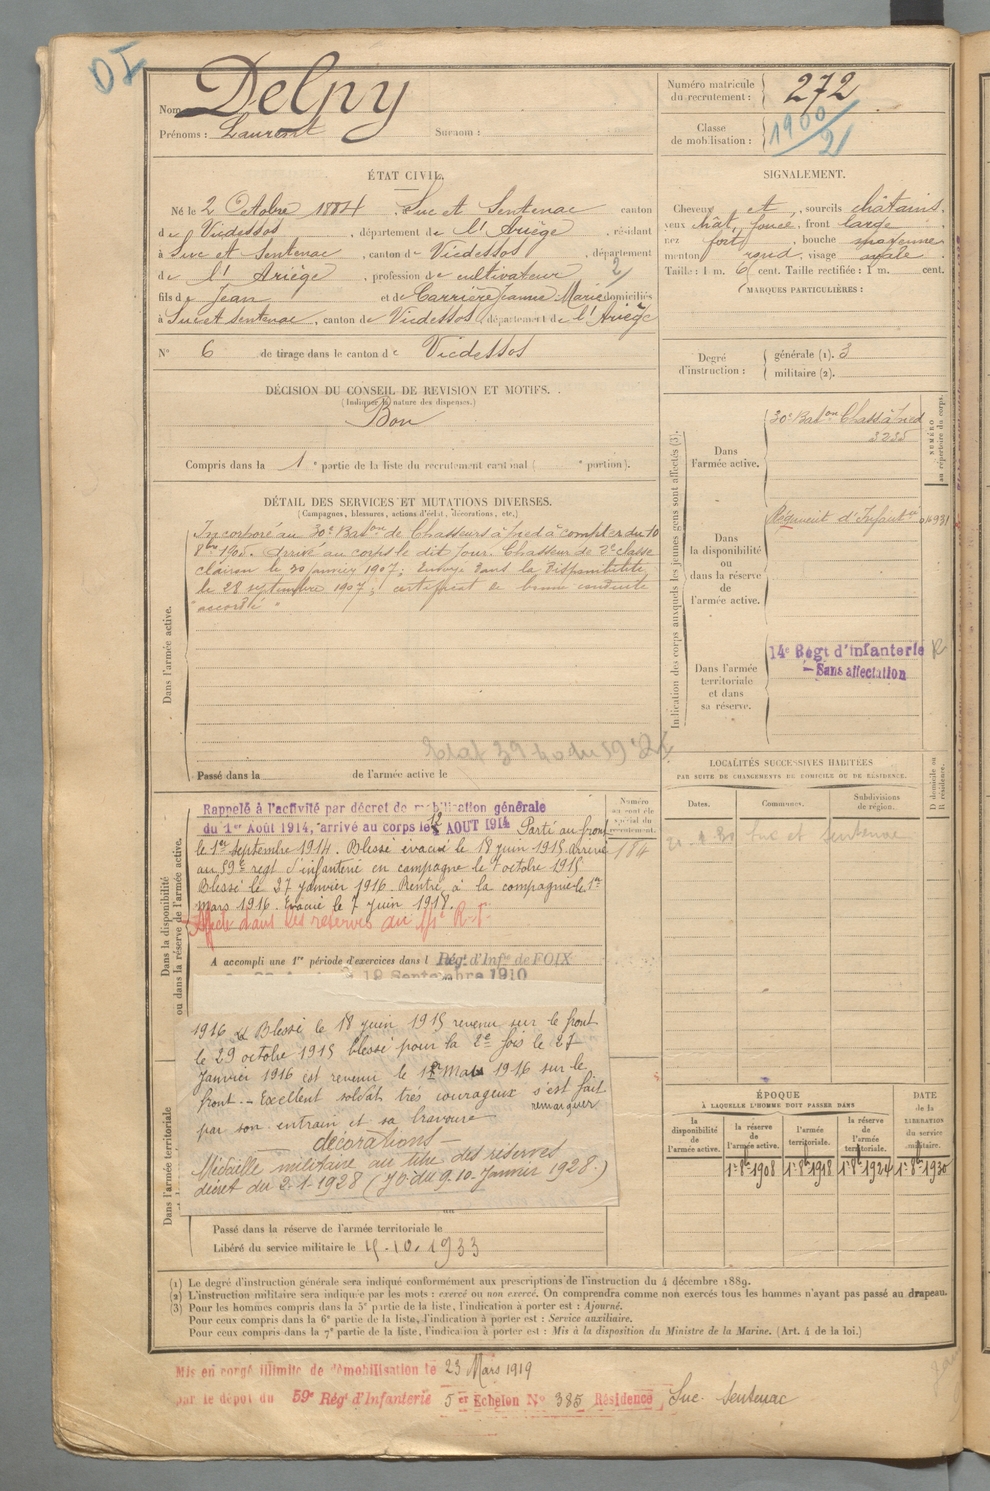 Nom Delpy
Prénoms : Laurent Surnom :
Numéro matricule du recrutement : 272
Classe de mobilisation : 1900/21
ÉTAT CIVIL.
Né le 2 Octobre 1884, Suc et Sentenac canton
de Vicdessos, département de l'Ariège, résidant
à Suc et Sentenac, canton de Vicdessos, département
de l'Ariège, profession de cultivateur 2
fils de Jean et de Carrière Jeanne Marie domiciliés
à Suc et Sentenac, canton de Vicdessos département de l'Ariège
N° 6 de tirage dans le canton de Vicdessos
SIGNALEMENT.
Cheveux et, sourcils châtains.
yeux chât. foncé, front large
nez fort, bouche moyenne
menton rond, visage ovale.
Taille : 1 m. 6 cent. Taille rectifiée : 1 m. cent.
MARQUES PARTICULIÈRES :
Degré d'instruction : générale (1). 3
militaire (2).
DÉCISION DU CONSEIL DE REVISION ET MOTIFS.
(Indiquer la nature des dispenses.)
Bon
Compris dans la 1e partie de la liste du recrutement cantonal ( e portion).
DÉTAIL DES SERVICES ET MUTATIONS DIVERSES.
(Campagnes, blessures, actions d'éclat, décorations, etc.)
Dans l'armée active.
Incorporé au 30e Baton de Chasseurs à pied à compter du 10
8bre 1905. Arrivé au corps le dit jour. Chasseur de 2e classe
clairon le 30 janvier 1907; Envoyé dans la disponibilité
le 28 septembre 1907; certificat de bonne conduite
"accordé"
Passé dans la de l'armée active le
Indication des corps auxquels les jeunes gens sont affectés (3).
NUMÉRO au répertoire du corps.
Dans l'armée active.
30e Baton Chass. à pied
3235
Dans la disponibilité ou dans la réserve de l'armée active.
Régiment d'Infantie 04931
Dans l'armée territoriale et dans sa réserve.
14e Régt d'infanterie
Sans affectation
LOCALITÉS SUCCESSIVES HABITÉES
PAR SUITE DE CHANGEMENTS DE DOMICILE OU DE RÉSIDENCE.
Dates. Communes. Subdivisions de région. D domicile ou R résidence.
Suc et Sentenac
Dans la disponibilité ou dans la réserve de l'armée active.
Rappelé à l'activité par décret de mobilisation générale
du 1er Août 1914, arrivé au corps le 12 AOUT 1914 Parti au front
le 1er septembre 1914. Blessé évacué le 18 juin 1915 arrivé
au 59e regt d'infanterie en campagne le 7 octobre 1915
Blessé le 27 janvier 1916 Rentré à la compagnie le 1er
mars 1916. Evacué le 7 juin 1918.
Affecté dans les réserves au
Numéro au contrôle spécial du recrutement.
184
A accompli une 1re période d'exercices dans l Rég. d'Infie de FOIX
Septembre 1910
1916 Blessé le 18 juin 1915 revenu sur le front
le 29 octobre 1915 blessé pour la 2e fois le 27
Janvier 1916 est revenu le 1er Mars 1916 sur le
front. - Excellent soldat très courageux s'est fait
remarquer
par son entrain et sa bravoure
décorations -
Médaille militaire au titre des réserves
décret du 2-1-1928 (JO du 9.10. Janvier 1928.)
Dans l'armée territoriale
Passé dans la réserve de l'armée territoriale le
Libéré du service militaire le 15.10.1933
ÉPOQUE
À LAQUELLE L'HOMME DOIT PASSER DANS
DATE de la LIBÉRATION du service militaire.
la disponibilité de l'armée active. la réserve de l'armée active. l'armée territoriale. la réserve de l'armée territoriale.
1er 8bre 1908 1er 8bre 1918 1er 8bre 1924 1er 8bre 1930
(1) Le degré d'instruction générale sera indiqué conformément aux prescriptions de l'instruction du 4 décembre 1889.
(2) L'instruction militaire sera indiquée par les mots : exercé ou non exercé. On comprendra comme non exercés tous les hommes n'ayant pas passé au drapeau.
(3) Pour les hommes compris dans la 5e partie de la liste, l'indication à porter est : Ajourné.
Pour ceux compris dans la 6e partie de la liste, l'indication à porter est : Service auxiliaire.
Pour ceux compris dans la 7e partie de la liste, l'indication à porter est : Mis à la disposition du Ministre de la Marine. (Art. 4 de la loi.)
Mis en congé illimité de démobilisation le 23 Mars 1919
par le dépôt du 59e Régt d'Infanterie 5 er Echelon N° 385 Résidence Suc. Sentenac